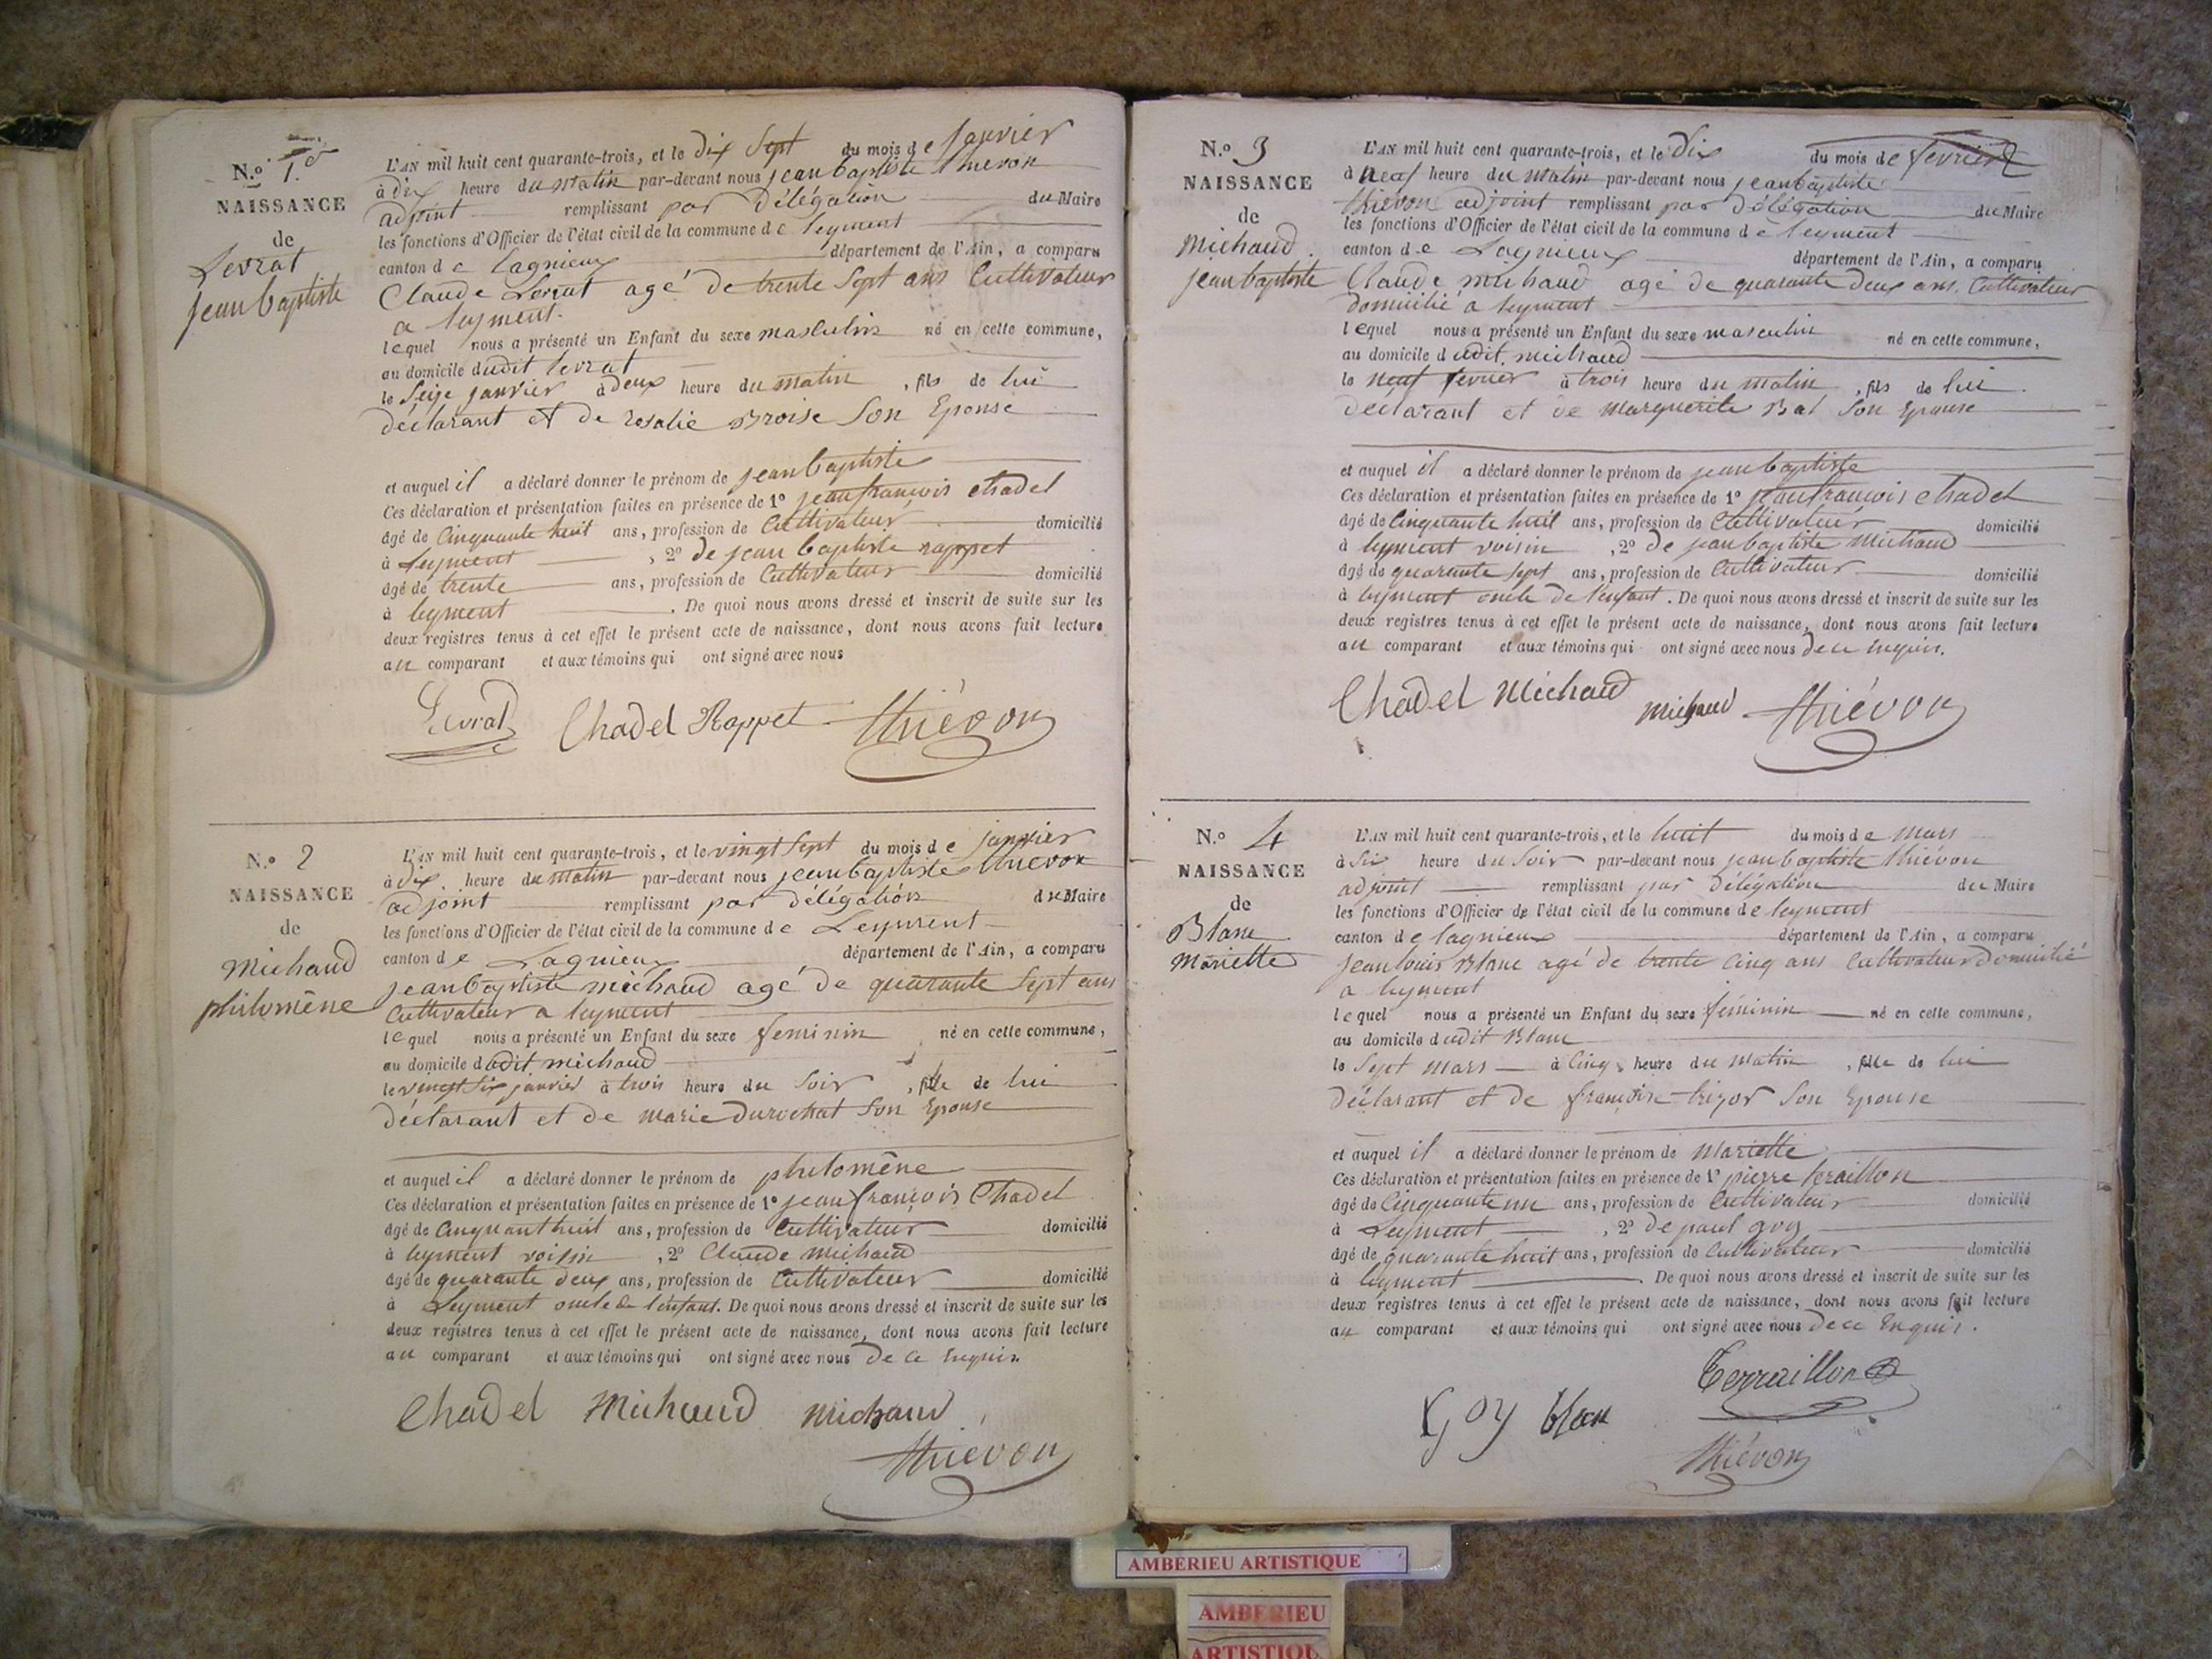 N.o 1.er
NAISSANCE
de
Levrat
jean baptiste
L'AN mil huit cent quarante-trois, et le dix Sept du mois de Janvier
à dix heure du matin par-devant nous jean baptiste thievon
adjoint remplissant par délégation du Maire
les fonctions d'Officier de l'état civil de la commune de leyment
canton de lagnieux département de l'Ain, a comparu
Claude Levrat agé de trente Sept ans Cultivateur
a leyment.
lequel nous a présenté un Enfant du sexe masculin né en cette commune,
au domicile dudit levrat
le Seize janvier à deux heure du matin, fils de lui
déclarant et de rosalie Broise Son Epouse
et auquel il a déclaré donner le prénom de jean baptiste
Ces déclaration et présentation faites en présence de 1o jean françois chadel
âgé de Cinquante huit ans, profession de Cultivateur domicilié
à Leyment, 2o de jean baptiste rappet
âgé de trente ans, profession de Cultivateur domicilié
à leyment. De quoi nous avons dressé et inscrit de suite sur les
deux registres tenus à cet effet le présent acte de naissance, dont nous avons fait lecture
au comparant et aux témoins qui ont signé avec nous
Levrat Chadel Rappet thiévon
N.o 2
NAISSANCE
de
michaud
philomène
L'AN mil huit cent quarante-trois, et le vingt Sept du mois de janvier
à dix heure du matin par-devant nous jean baptiste thievon
adjoint remplissant par délégation du Maire
les fonctions d'Officier de l'état civil de la commune de Leyment
canton de Lagnieux département de l'Ain, a comparu
jean baptiste michaud agé de quarante Sept ans
Cultivateur a leyment
lequel nous a présenté un Enfant du sexe feminin né en cette commune,
au domicile dudit michaud
le vingt Six janvier à trois heure du Soir, fille de lui
déclarant et de marie durochat Son Epouse
et auquel il a déclaré donner le prénom de philomène
Ces déclaration et présentation faites en présence de 1o jean françois Chadel
âgé de Cinquant huit ans, profession de Cultivateur domicilié
à leyment voisin, 2o Claude michaud
âgé de quarante deux ans, profession de Cultivateur domicilié
à Leyment oncle de l'enfant. De quoi nous avons dressé et inscrit de suite sur les
deux registres tenus à cet effet le présent acte de naissance, dont nous avons fait lecture
au comparant et aux témoins qui ont signé avec nous de ce Enquis.
Chadel Michaud michaud
thiévon
N.o 3
NAISSANCE
de
michaud
jean baptiste
L'AN mil huit cent quarante-trois, et le dix du mois de fevrier
à neuf heure du matin par-devant nous jean baptiste
thiévon adjoint remplissant par délégation du Maire
les fonctions d'Officier de l'état civil de la commune de leyment
canton de Lagnieux département de l'Ain, a comparu
Claude michaud agé de quarante deux ans, Cultivateur
domicilié a leyment
lequel nous a présenté un Enfant du sexe masculin né en cette commune,
au domicile dudit michaud
le neuf fevrier à trois heure du matin, fils de lui
déclarant et de marguerite Bal Son Epouse
et auquel il a déclaré donner le prénom de jean baptiste
Ces déclaration et présentation faites en présence de 1o jean françois chadel
âgé de Cinquante huit ans, profession de Cultivateur domicilié
à leyment voisin, 2o de jean baptiste michaud
âgé de quarante Sept ans, profession de Cultivateur domicilié
à leyment oncle de l'enfant. De quoi nous avons dressé et inscrit de suite sur les
deux registres tenus à cet effet le présent acte de naissance, dont nous avons fait lecture
au comparant et aux témoins qui ont signé avec nous de ce enquis.
Chadel Michaud michaud thiévon
N.o 4
NAISSANCE
de
Blanc
Mariette
L'AN mil huit cent quarante-trois, et le huit du mois de mars
à Six heure du Soir par-devant nous jean baptiste thiévon
adjoint remplissant par délégation du Maire
les fonctions d'Officier de l'état civil de la commune de leyment
canton de lagnieux département de l'Ain, a comparu
jean louis Blanc agé de trente Cinq ans Cultivateur domicilié
a leyment
lequel nous a présenté un Enfant du sexe féminin né en cette commune,
au domicile dudit Blanc
le Sept mars à Cinq heure du matin, fille de lui
déclarant et de françoise trizor Son Epouse
et auquel il a déclaré donner le prénom de Mariette
Ces déclaration et présentation faites en présence de 1o pierre teraillon
âgé de Cinquante un ans, profession de Cultivateur domicilié
à Leyment, 2o de paul goy
âgé de quarante huit ans, profession de Cultivateur domicilié
à leyment. De quoi nous avons dressé et inscrit de suite sur les
deux registres tenus à cet effet le présent acte de naissance, dont nous avons fait lecture
au comparant et aux témoins qui ont signé avec nous de ce Enquis.
Terraillon
goy blan
thiévon
AMBERIEU ARTISTIQUE
AMBERIEU
ARTISTIQU